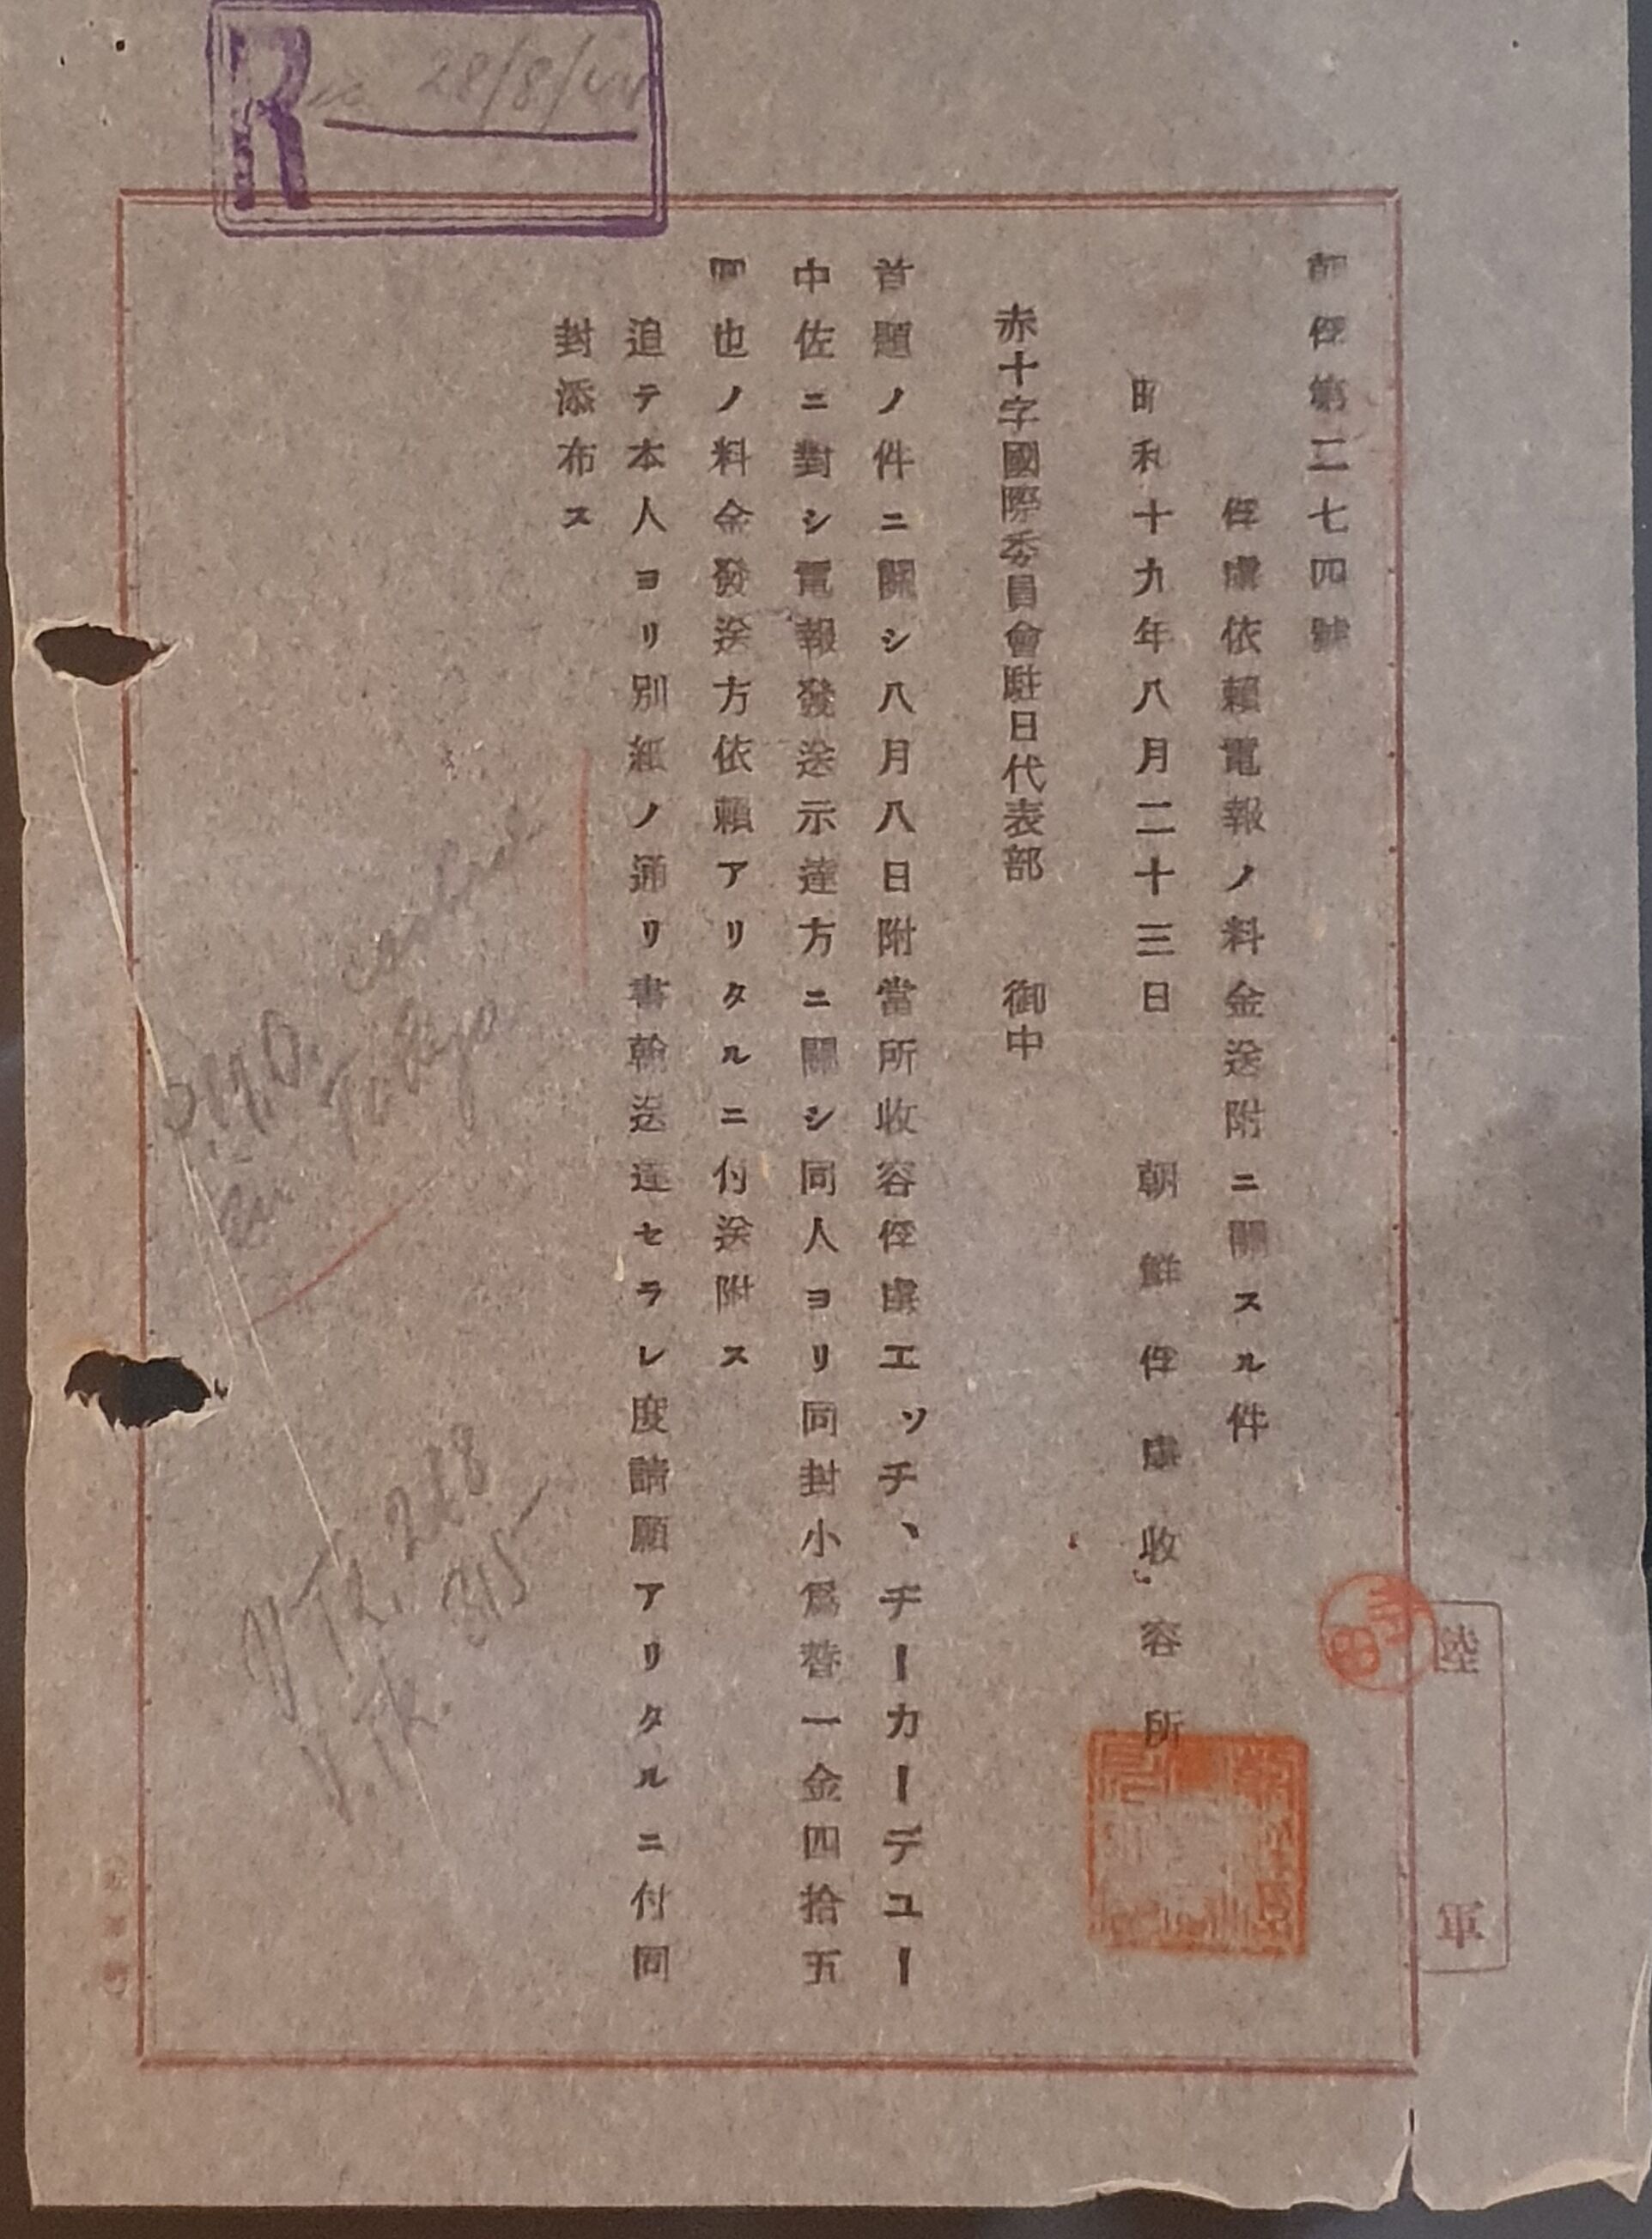 朝俘第二七四號
俘虜依賴電報ノ料金送附ニ關スル件
昭和十九年八月二十三日 朝鮮俘虜收容所
赤十字國際委員會駐日代表部 御中
首題ノ件ニ關シ八月八日附當所收容俘虜エッチ、チーカーデユー
中佐ニ對シ電報發送示達方ニ關シ同人ヨリ同封小爲替一金四拾五
圓也ノ料金發送方依賴アリタルニ付送附ス
追テ本人ヨリ別紙ノ通リ書翰送達セラレ度請願アリタルニ付同
封添布ス
陸軍
寺田
R 28/8/44
cashed
Tokyo
V.Th. 288
V.Th. 315